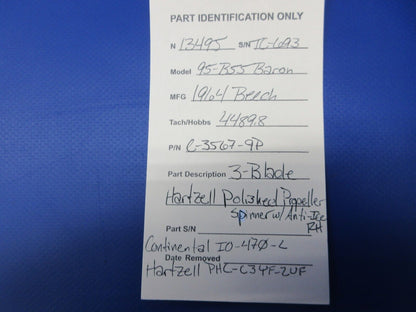 PART IDENTIFICATION ONLY
N 1349J S/N TC-693
Model 95-B55 Baron
MFG 1964 Beech
Tach/Hobbs 4489.8
P/N C-3567-9P
Part Description 3-Blade
Hartzell Polished Propeller
Spinner w/ Anti-Ice
Part S/N RH
Continental IO-470-L
Date Removed
Hartzell PHC-C3YF-2UF